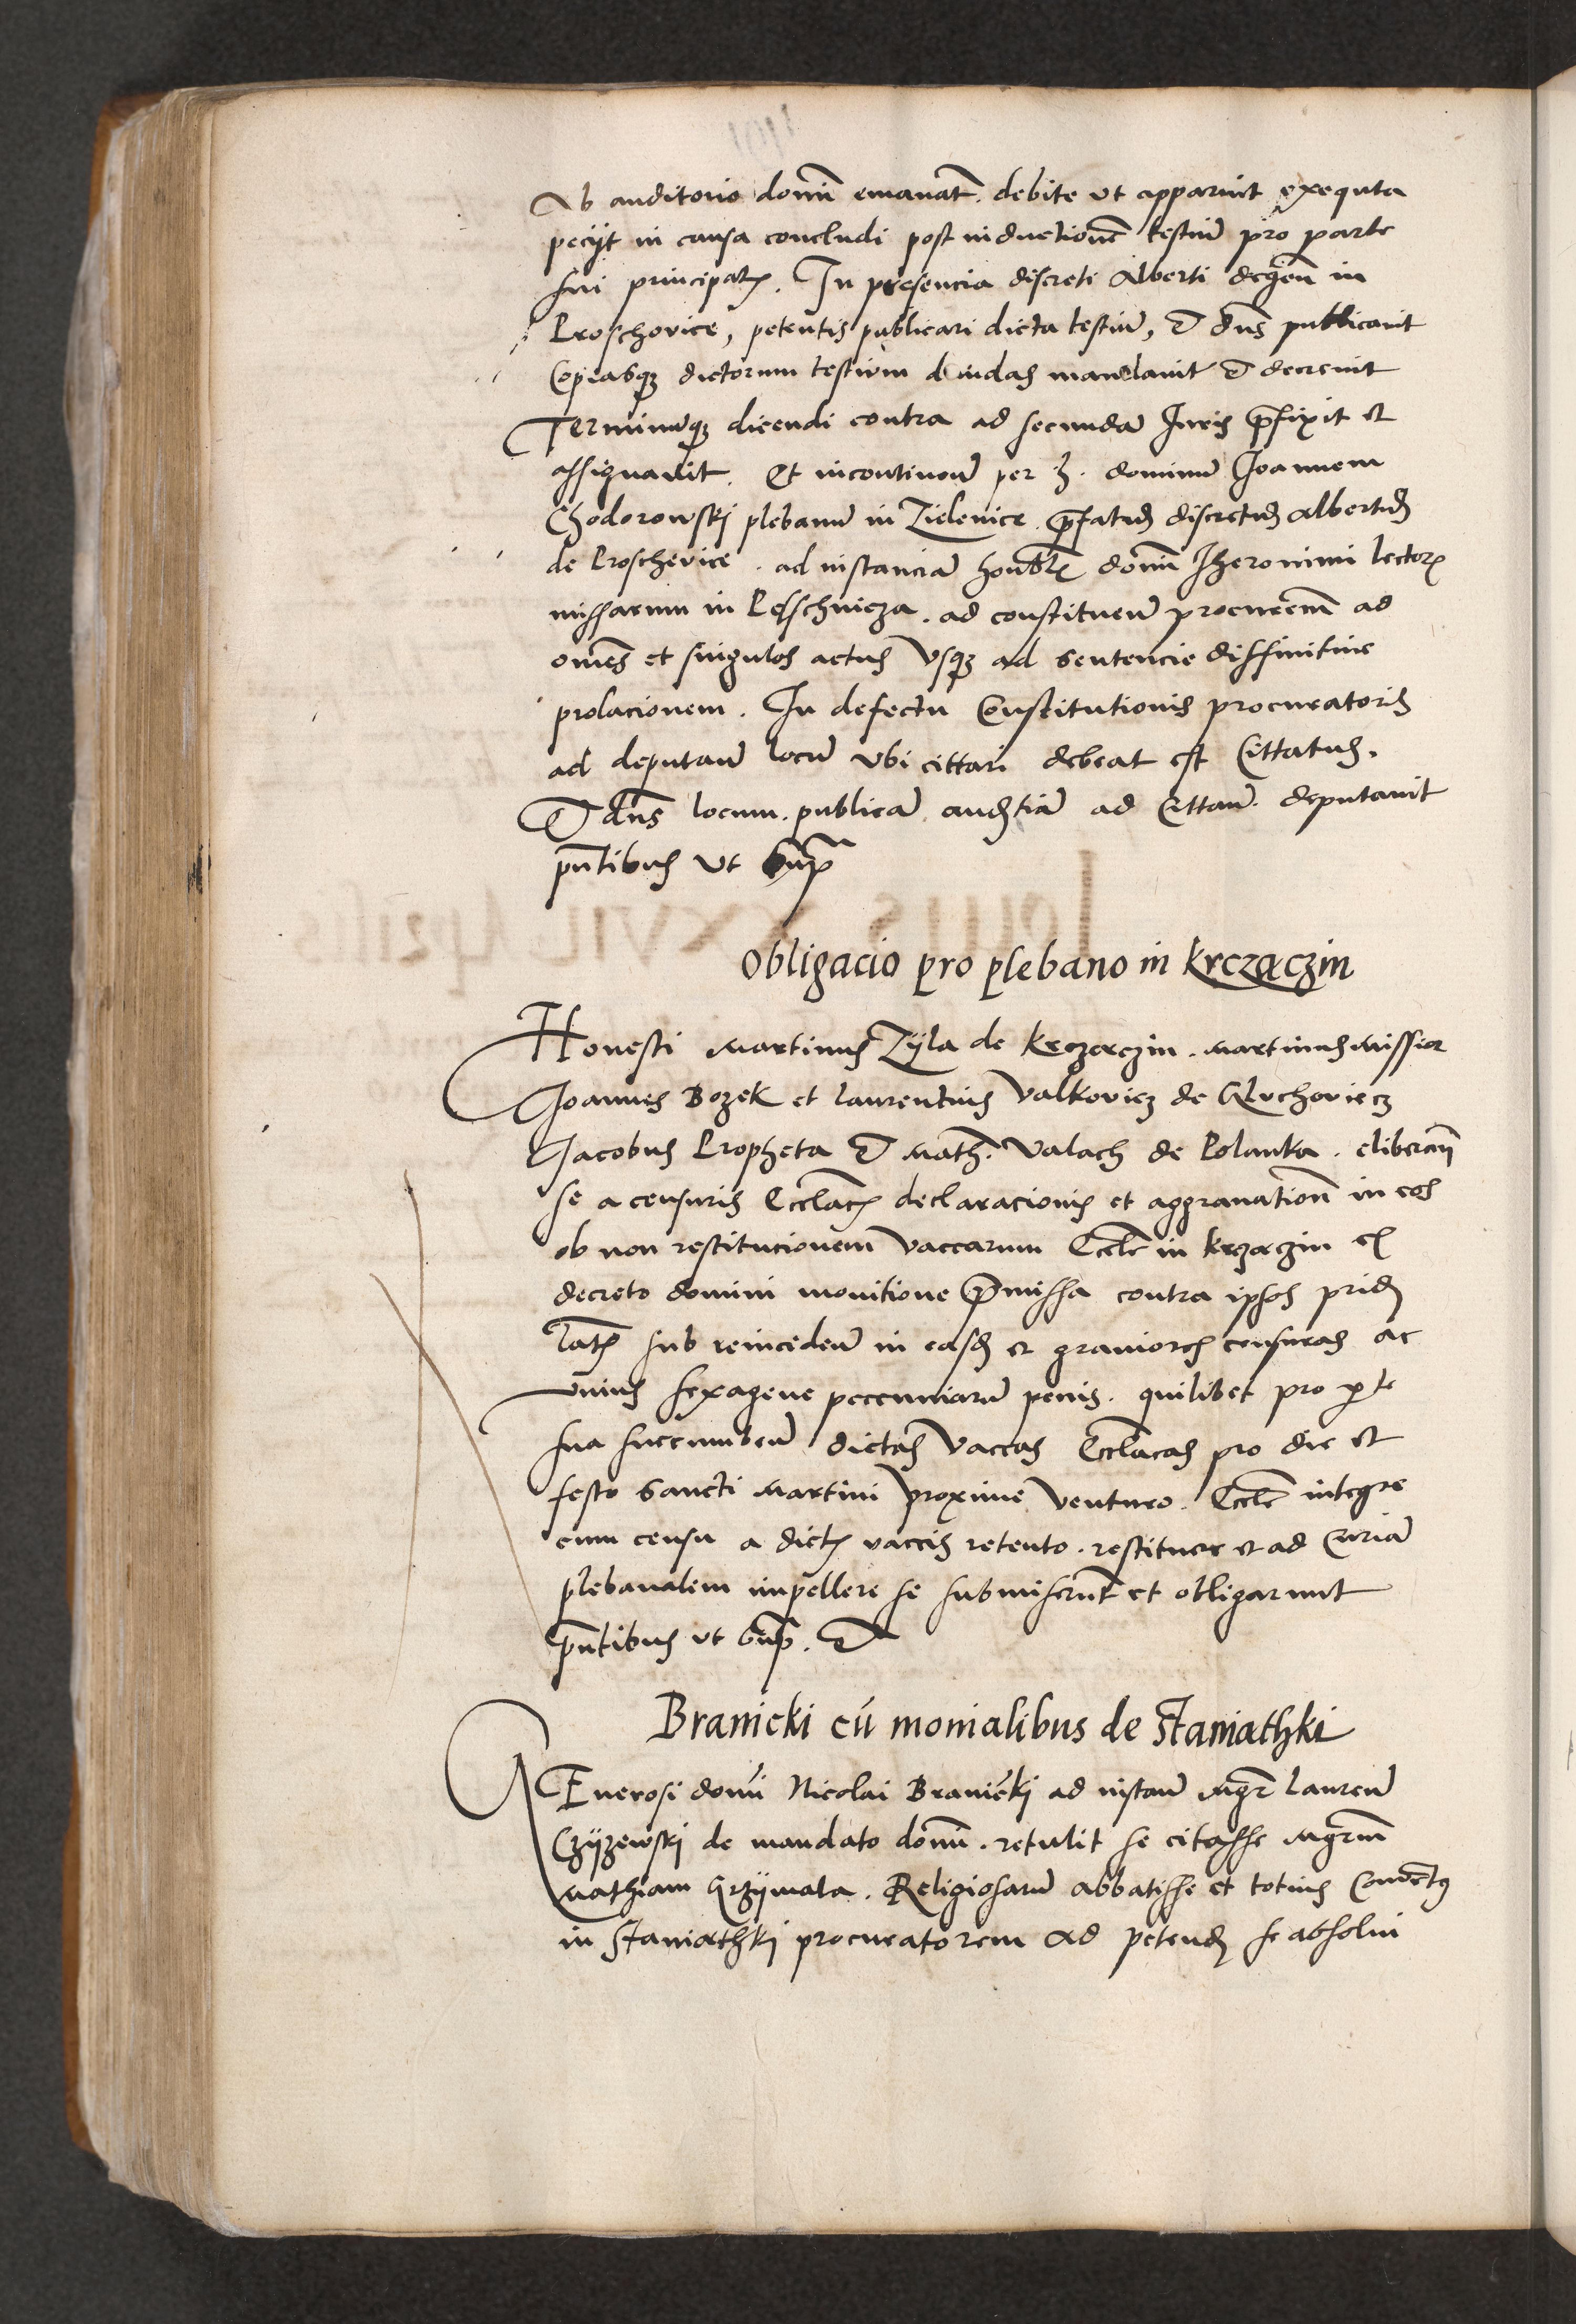 Ab auditorio domī emanat̄. debite ut apparuit exequta
peciit in causa concludi post inductionē testiū pro parte
sui principal̄. In presencia discreti Alberti degeñ in
Proschovice, petentis publicari dicta testiū, & dn̄s publicavit
Copiasqʒ dictorum testium dandas mandavit & decrevit
Terminūqʒ dicendi contra ad secundā Iuris p̄fixit et
assignavit. Et incontineñ per h. dominū Joannem
Chodorowskj plebanū in Zielenice p̄fatus discretus Albertus
de Proschevice. ad instanciā honbl̄ domī Iheronimi lectoris
missarum in Pelschnicza. ad constitueñ procurem̄ ad
omēs et singulos actus usqʒ ad sentencie diffinitive
prolacionem. In defectu Constitutionis procuratoris
ad deputañ locū ubi cittari debeat est Cittatus.
& dn̄s locum. publicā audtiā ad Cittañ. deputavit
pn̄tibus ut sup̄
Obligacio pro plebano in Krczączin
Honesti Martinus Zyla de Krczęczin. Martinus Missior
Joannes Bozek et Laurentius Valkovicz de Gluchoviecz
Jacobus Propheta & Math. Valach de Polanka. eliberañ
se a censuris Eccl̄ac̄ declaracionis et aggravation̄ in eos
ob non restitucionem vaccarum Eccl̄e in Krczączin ex
decreto domini monitione p̄missa contra ipsos prid
lat̄ sub reincideñ in easd et graviores censuras ac
unius sexagene peccuniarū penis. quilibet pro pte
sua succumbeñ dictas vaccas Eccl̄acas pro die et
festo sancti Martini proxime venturo. Eccl̄e integre
cum censu a dict̄ vaccis retento. restituere et ad Curiā
plebanalem impellere se submiserūt et obligarunt
pn̄tibus ut sup̄. &
Branicki cū monialibus de Staniathki
GEnerosi domī Nicolai Branicskj ad instañ Mgr̄ Laureñ
Czyzewskj de mandato domī. retulit se citasse Mgr̄m
Mathiam Grzymala. Religiosarū abbatisse et totius Conventus
in Staniathkj procuratorem ad petend se absolvi